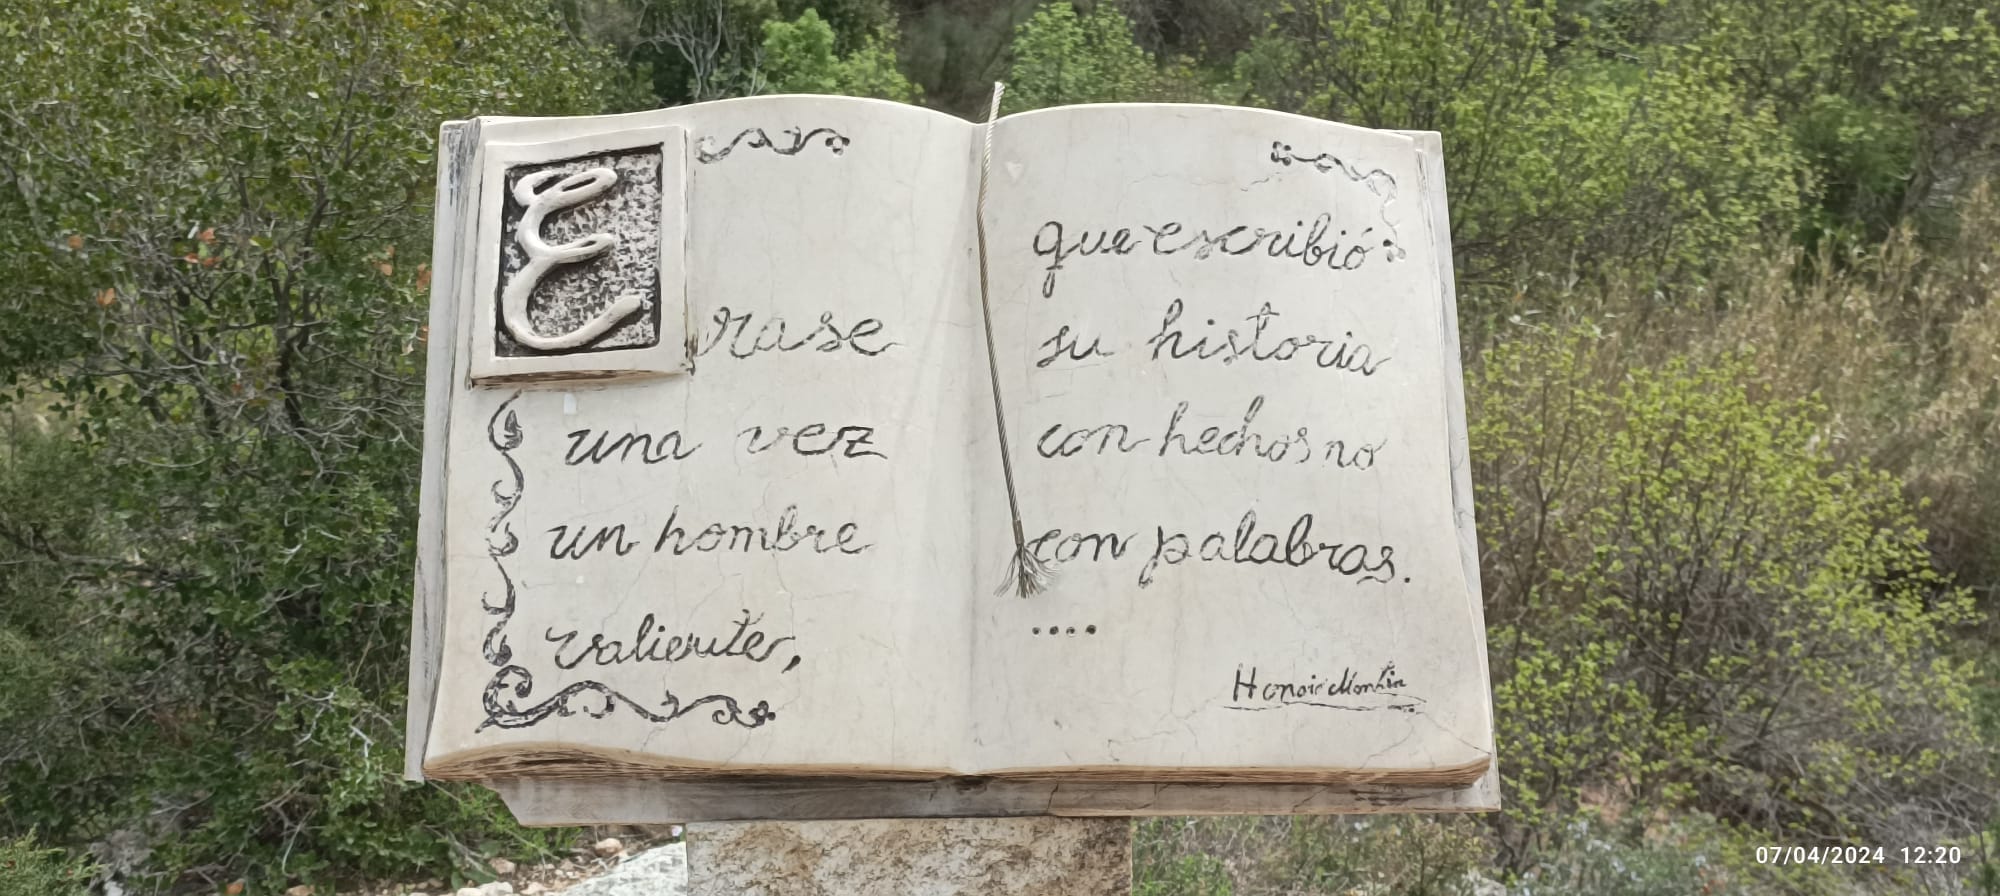 Erase
una vez
un hombre
valiente,
que escribió:
su historia
con hechos no
con palabras.
....
07/04/2024 12:20